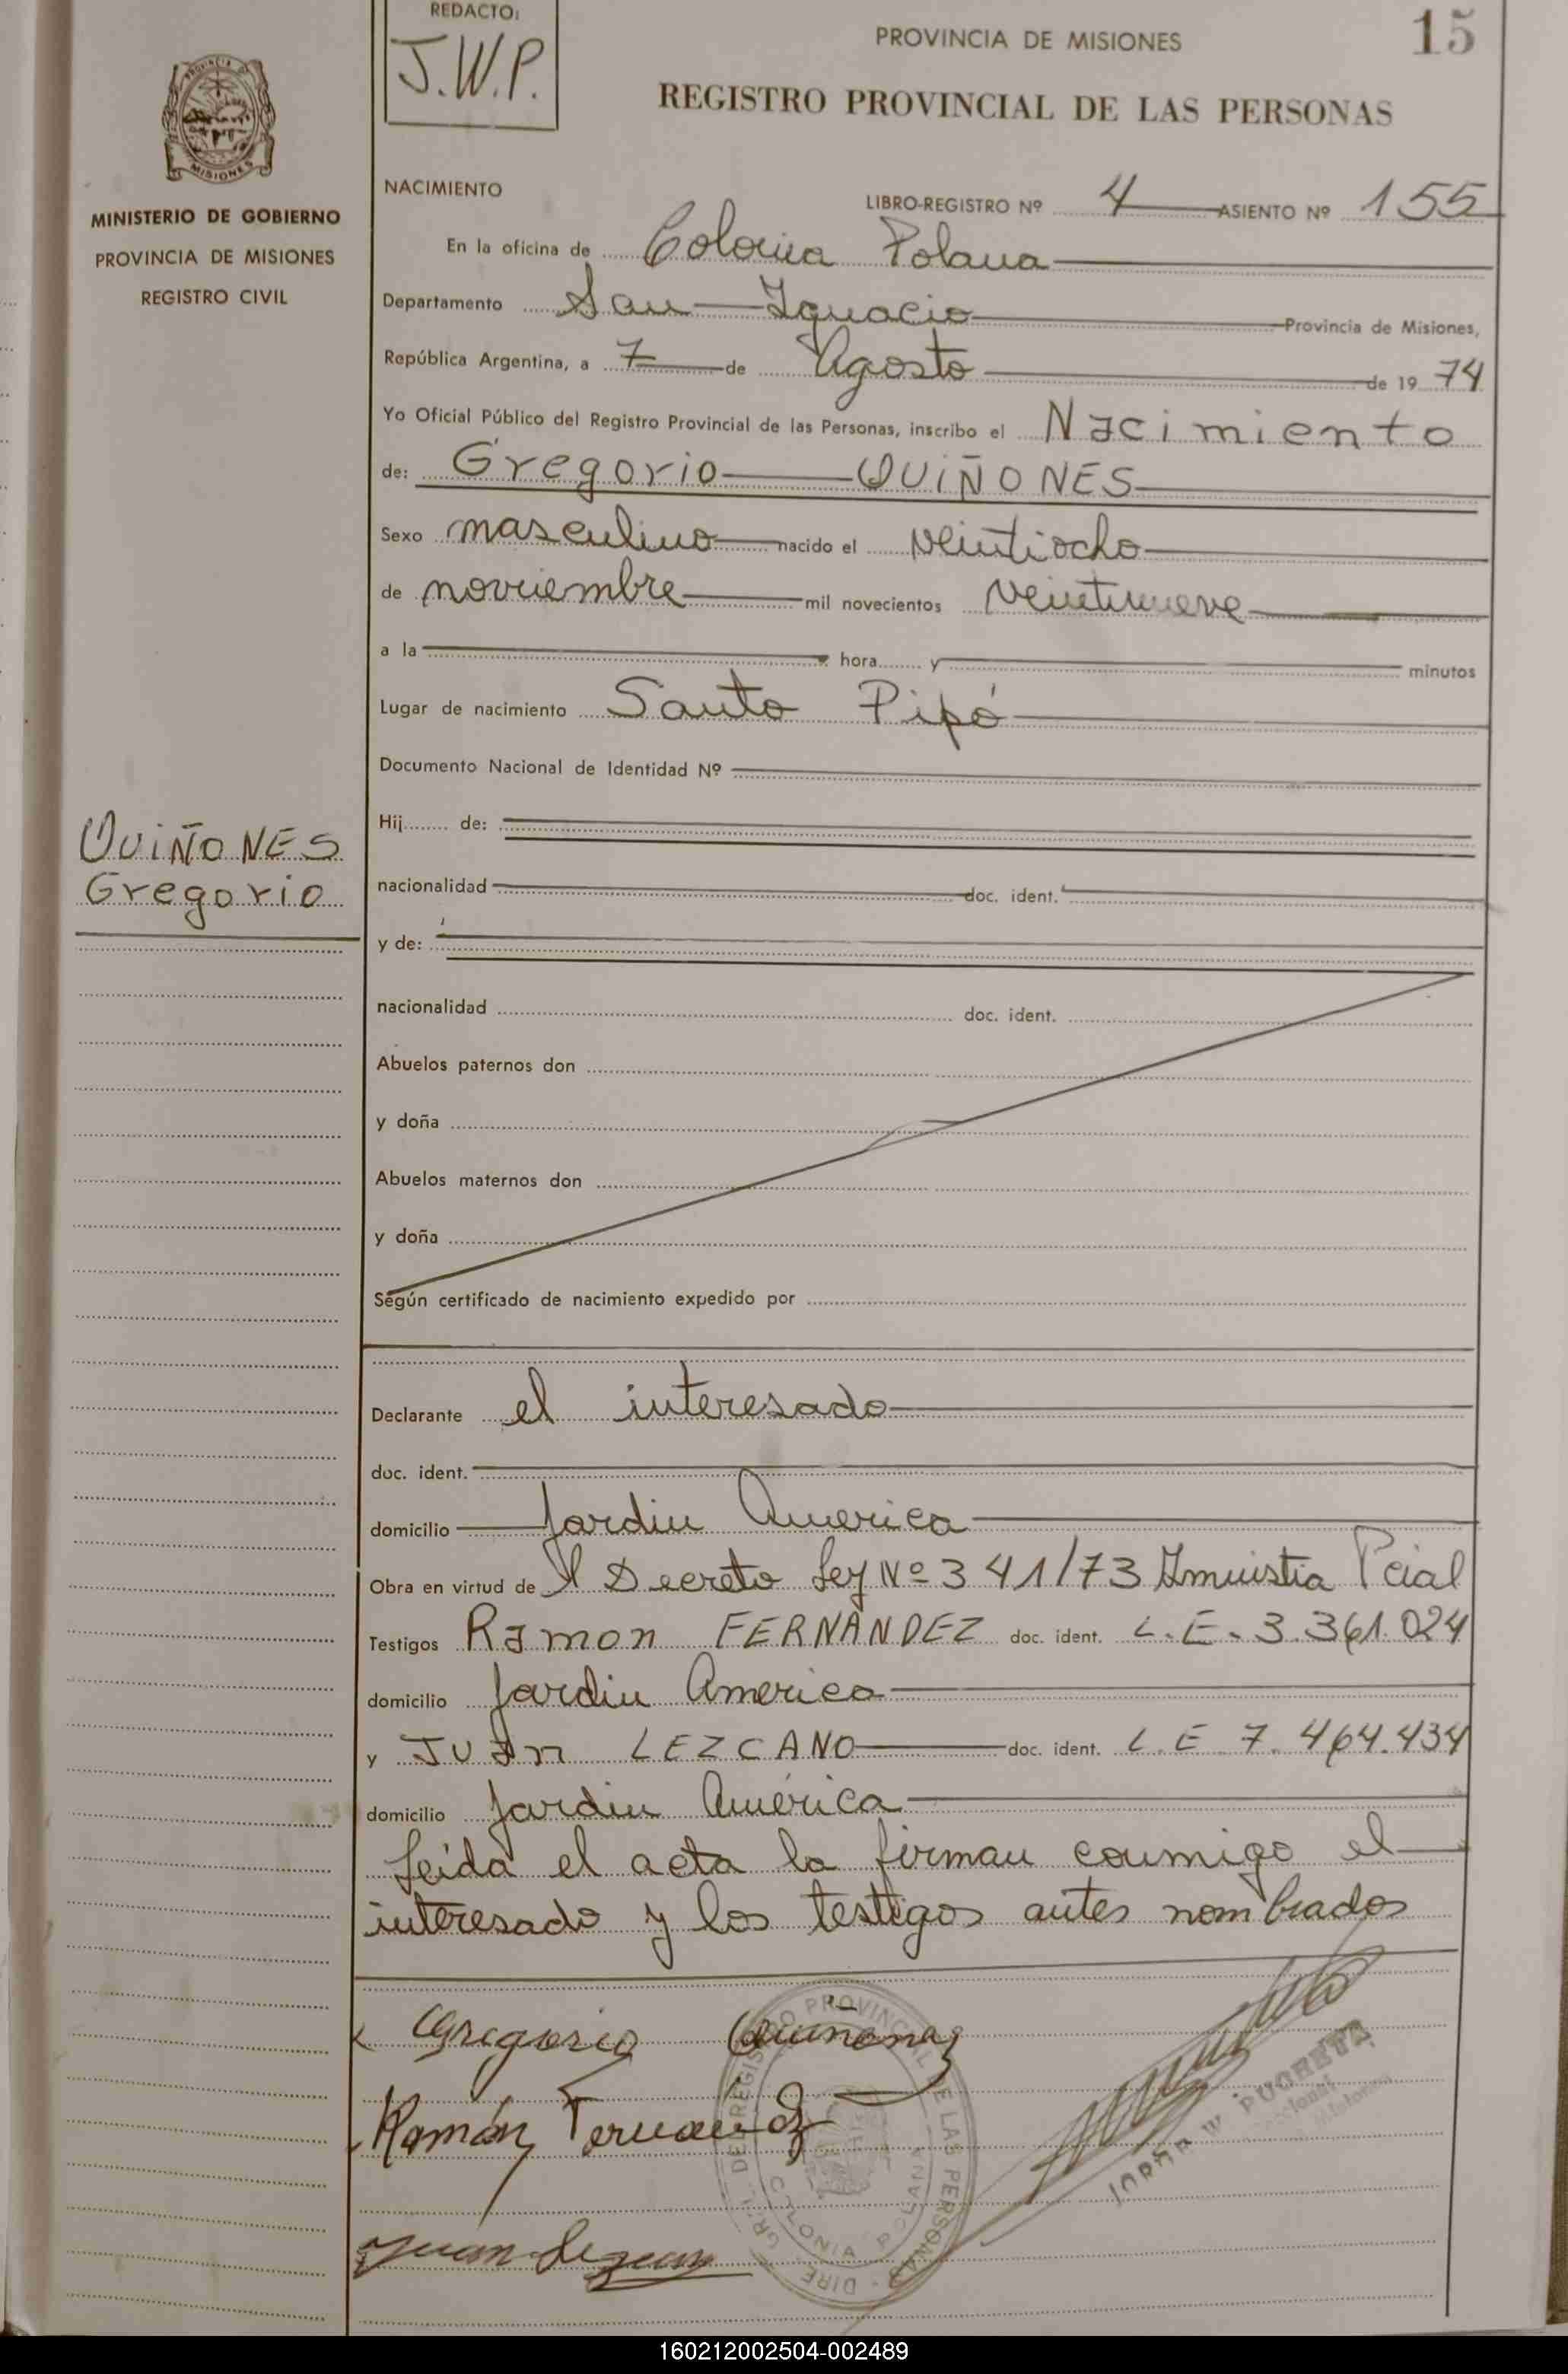 REDACTO:
J.W.P.
PROVINCIA DE MISIONES
15
REGISTRO PROVINCIAL DE LAS PERSONAS
MISIONES
MINISTERIO DE GOBIERNO
PROVINCIA DE MISIONES
REGISTRO CIVIL
QUIÑONES
Gregorio
NACIMIENTO
LIBRO-REGISTRO Nº 4 ASIENTO Nº 155
En la oficina de Colonia Polana
Departamento San Ignacio Provincia de Misiones,
República Argentina, a 7 de Agosto de 19 74
Yo Oficial Público del Registro Provincial de las Personas, inscribo el Nacimiento
de: Gregorio QUIÑONES
Sexo masculino nacido el veintiocho
de noviembre mil novecientos veintinueve
a la hora y minutos
Lugar de nacimiento Santo Pipó
Documento Nacional de Identidad Nº
Hij de:
nacionalidad doc. ident.
y de:
nacionalidad doc. ident.
Abuelos paternos don
y doña
Abuelos maternos don
y doña
Según certificado de nacimiento expedido por
Declarante el interesado
doc. ident.
domicilio Jardin America
Obra en virtud de Decreto Ley Nº 341/73 Amnistia Pcial
Testigos Ramon FERNÁNDEZ doc. ident. L.E. 3.361.024
domicilio Jardin America
y JUAN LEZCANO doc. ident. L.E 7.464.434
domicilio Jardin América
Leída el acta la firman conmigo el
interesado y los testigos antes nombrados
Gregorio Quiñonez
Ramón Fernandez
Juan
COLONIA POLANA